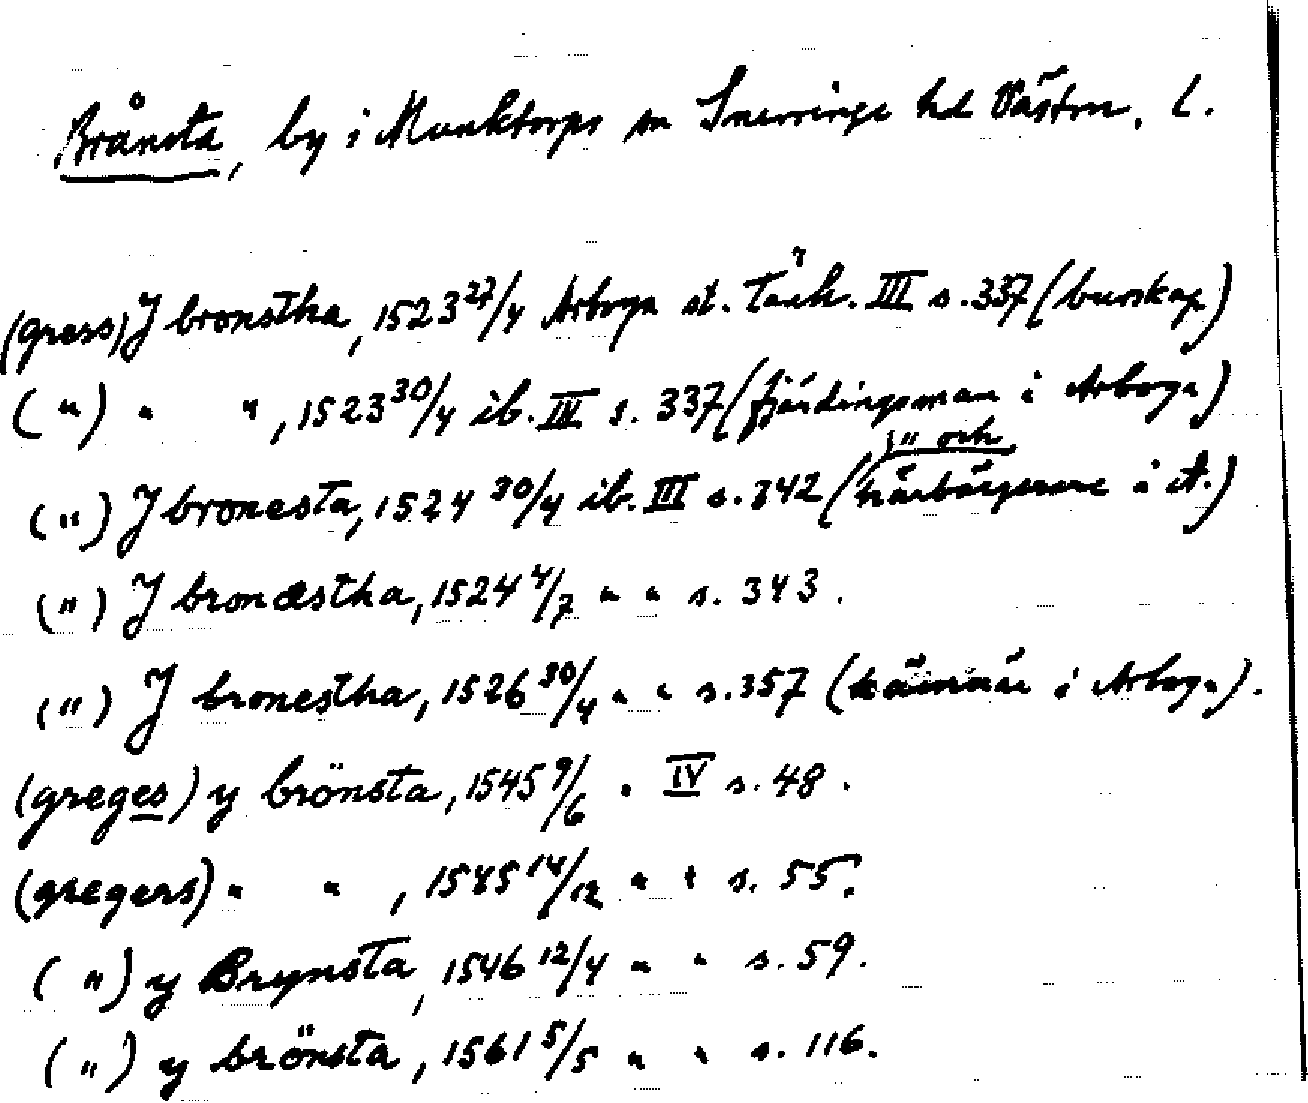 Brånsta, by i Munktorps sn Snevringe hd Västm. l.
(gress) J bronstha, 1523 27/4 Arboga st. Tänk. III s. 337 (burskap)
( " ) " " , 1523 30/4 ib. III s. 337 (fjärdingsman i Arboga)
( " ) J bronesta, 1524 30/4 ib. III s. 342 ( " och härbärgerare i A.)
( " ) J bronæstha, 1524 4/7 " " s. 343.
( " ) J bronestha, 1526 30/4 " " s. 357 (kämnär i Arboga).
(greges) y brönsta, 1545 9/6 " IV s. 48.
(gregers) " " , 1545 14/12 " " s. 55.
( " ) y Brynsta, 1546 12/4 " " s. 59.
( " ) y brönsta, 1561 5/5 " " s. 116.